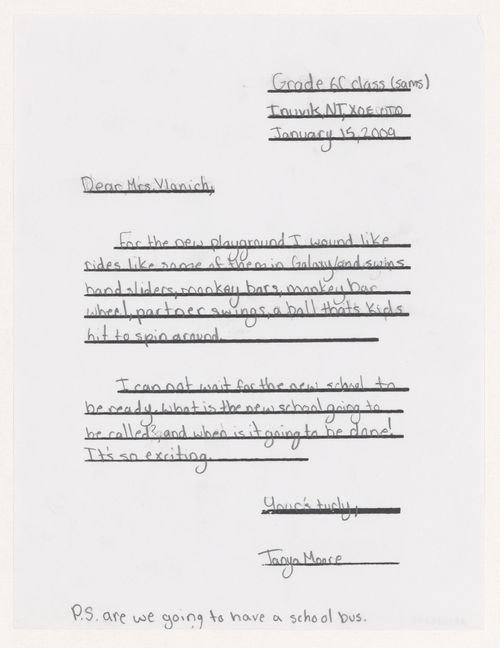 Grade 6C class (sams)
Inuvik, NT, X0E 0T0
January 15, 2009
Dear Mrs. Vlanich,
For the new playground I wound like
rides like some of them in Galaxy land swins
hand sliders, monkey bars, monkey bar
wheel, partner swings, a ball thats kids
hit to spin around.
I can not wait for the new school to
be ready, what is the new school going to
be called?, and when is it going to be done!
It's so exciting.
Your's turly,
Tanya Moore
P.S. are we going to have a school bus.